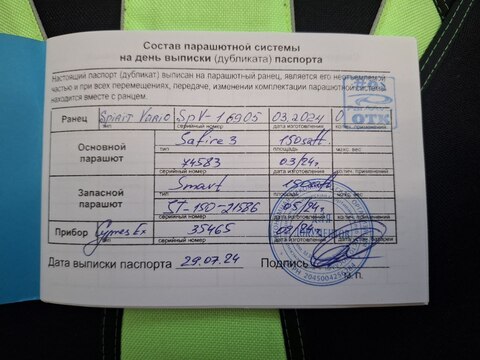 Состав парашютной системы
на день выписки (дубликата) паспорта
Настоящий паспорт (дубликат) выписан на парашютный ранец, является его неотъемлемой
частью и при всех перемещениях, передаче, изменении комплектации парашютной системы
находится вместе с ранцем.
Ранец Spirit Vario SpV-16905 03.2024 0
тип серийный номер дата изготовления кол. применений
Основной парашют Safire 3 150saft.
тип площадь макс. вес
74583 03/24г.
серийный номер дата изготовления кол-во применений
Запасной парашют Smart 150saft
тип площадь макс. вес
ST-150-21586 05/24г.
серийный номер дата изготовления кол-во применений
Прибор Cypres Ex 35465 02/24г.
тип серийный номер дата изготовления дата устан. батареи
Дата выписки паспорта 29.07.24 Подпись
М. П.
#63
ОТК